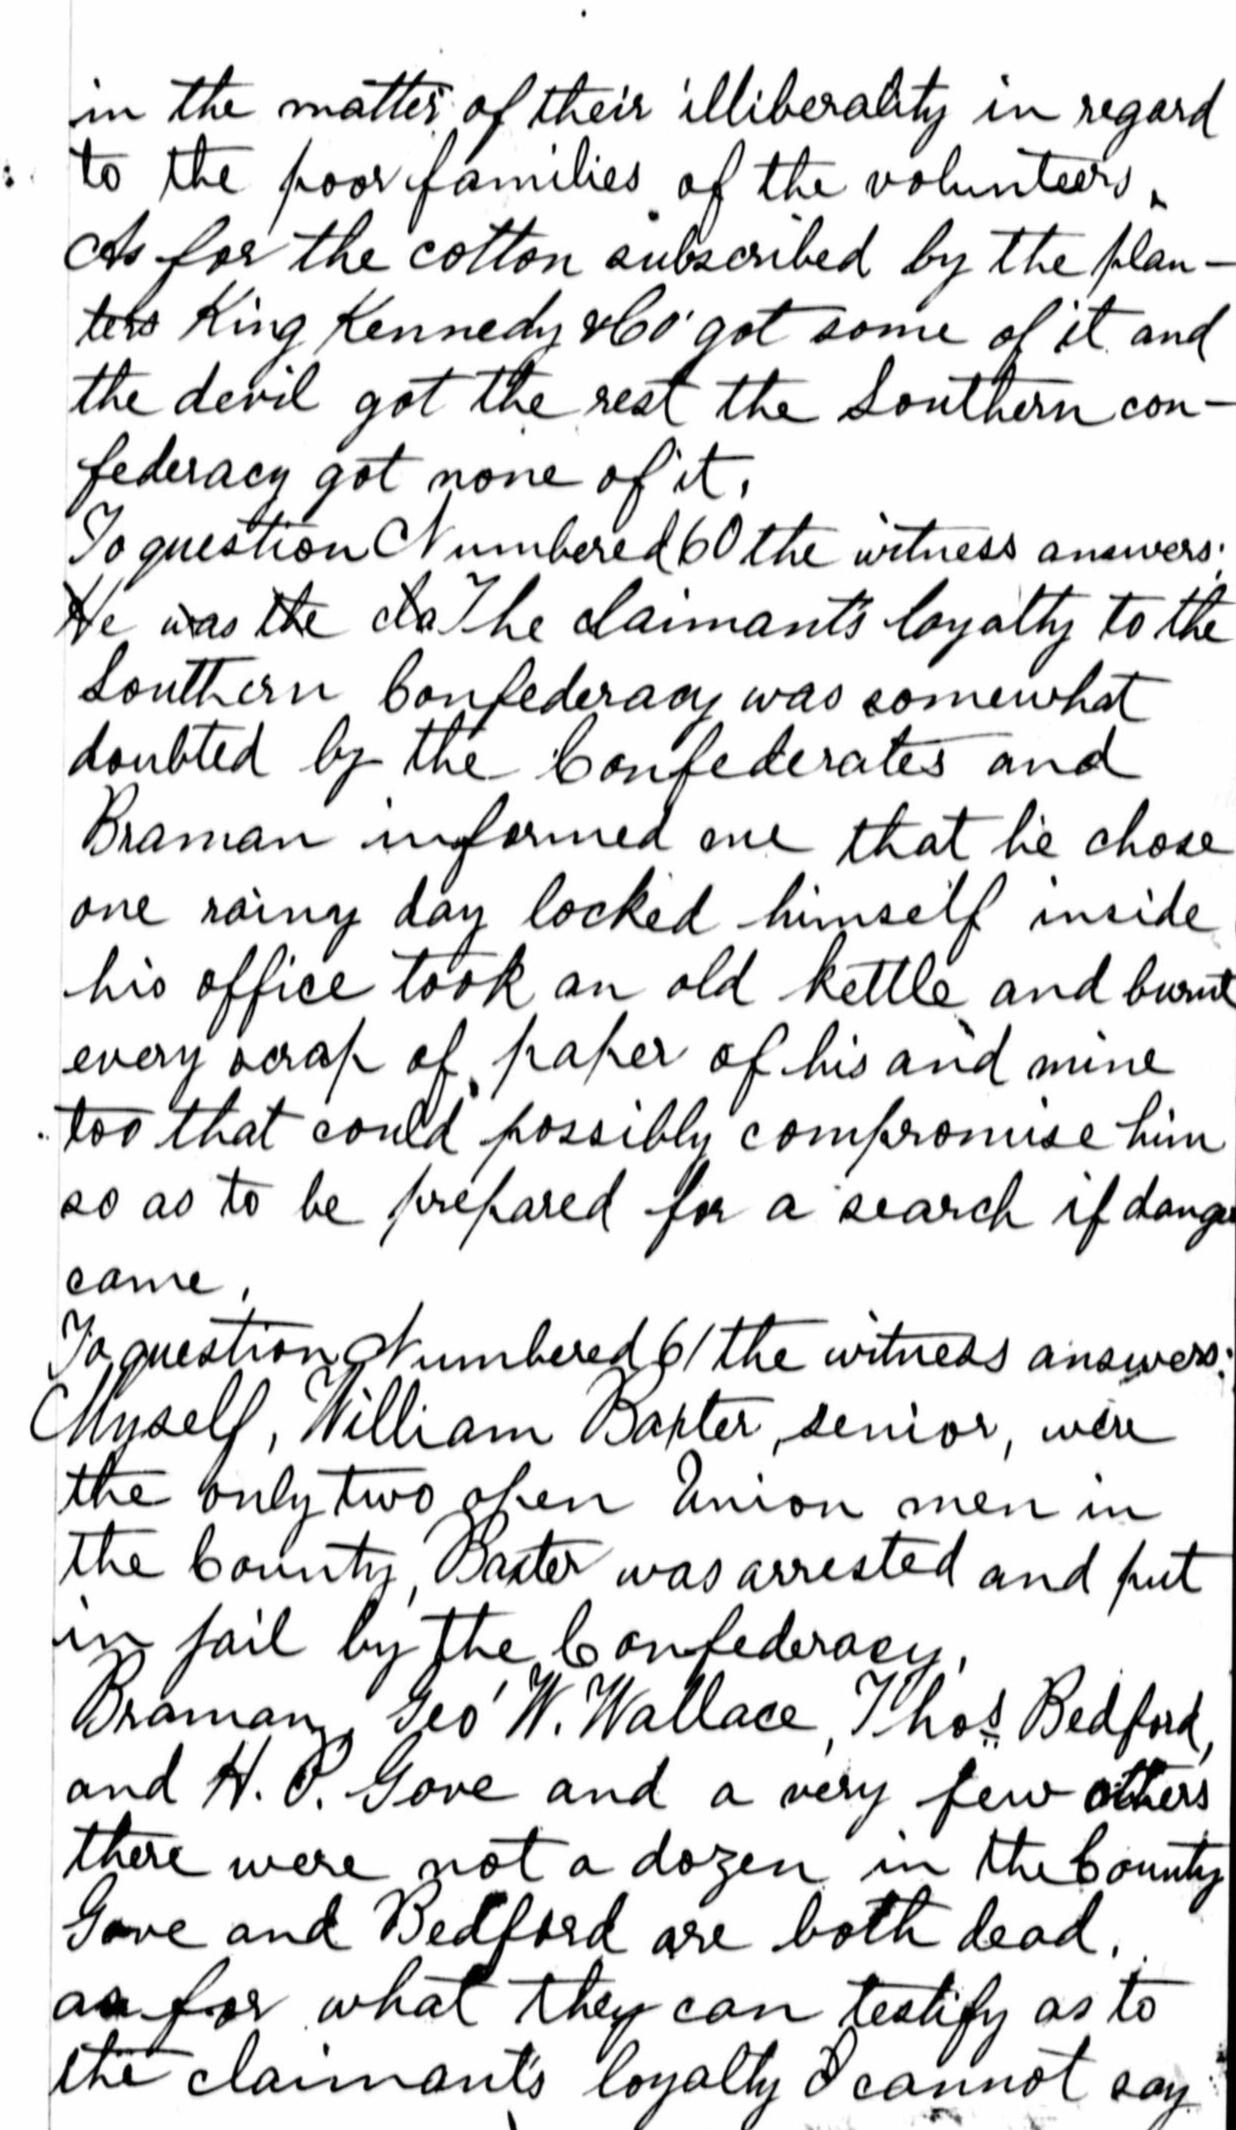 in the matter of their illiberality in regard
to the poor families of the volunteers.
As for the cotton subscribed by the plan-
ters King Kennedy & Co got some of it and
the devil got the rest the Southern con-
federacy got none of it.
To question Numbered 60 the witness answers:
He was the cla The claimant's loyalty to the
Southern Confederacy was somewhat
doubted by the Confederates and
Braman informed me that he chose
one rainy day locked himself inside
his office took an old kettle and burnt
every scrap of paper of his and mine
too that could possibly compromise him
so as to be prepared for a search if dange
came.
To question Numbered 61 the witness answers:
Myself, William Baxter, senior, were
the only two open Union men in
the County, Baxter was arrested and put
in jail by the Confederacy.
Braman, Geo W. Wallace, Thos Bedford,
and H. P. Gove and a very few others
there were not a dozen in the County
Gove and Bedford are both dead.
as for what they can testify as to
the claimant's loyalty I cannot say